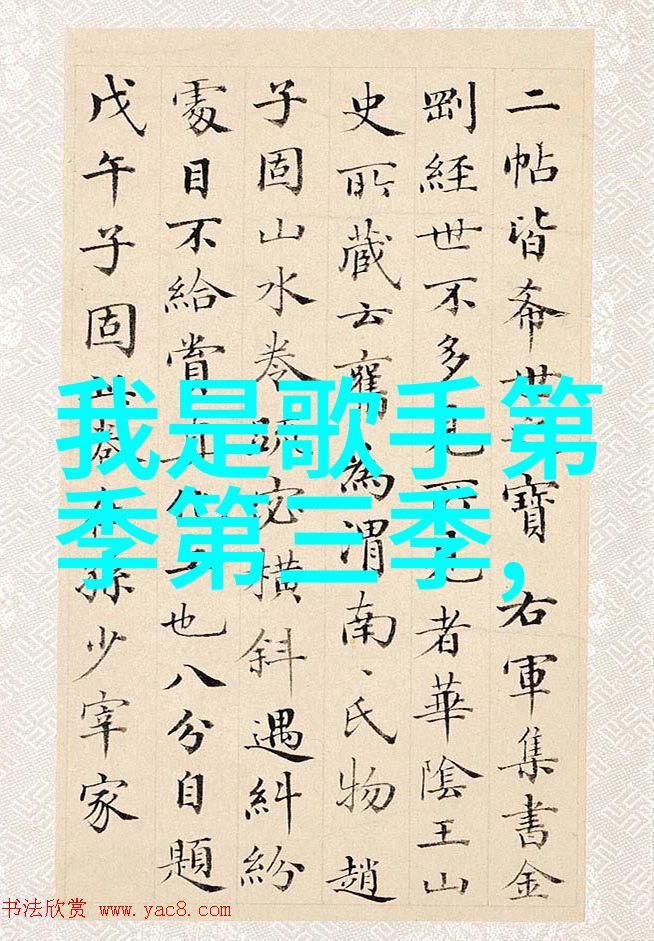 二帖皆希世寶右軍集書金
剛經世不多見所見者華陰王山
史所藏云舊為渭南、氏物趙
子固山水卷疏密橫斜遇糾紛
處目不給賞也八分自題
戊午子固此卷在孫少宰家
我是歌手第
季第三季,
书法欣赏 www.yac8.com